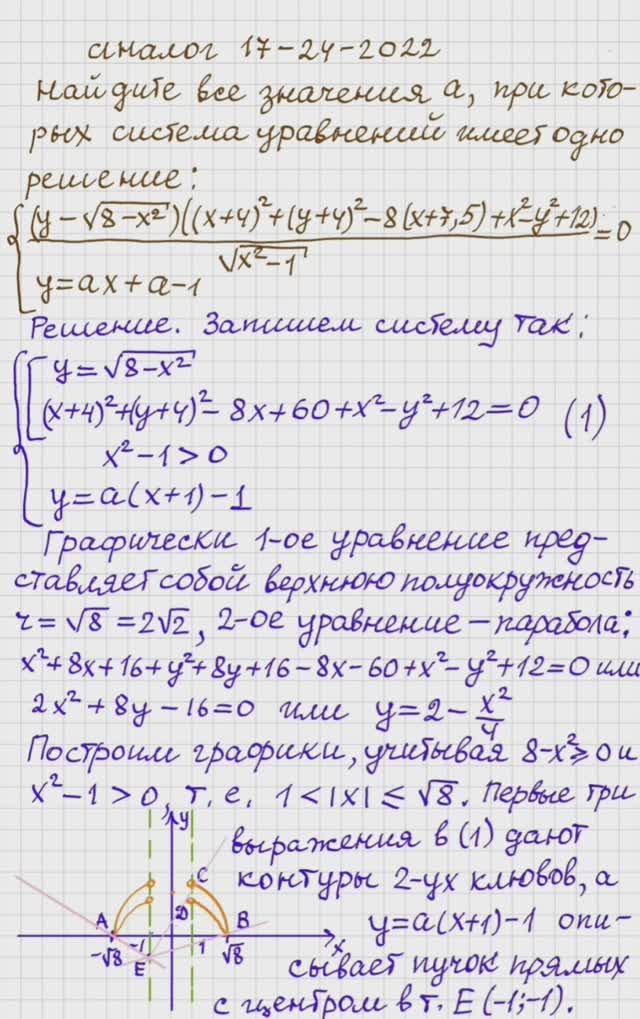 аналог 17-24-2022
Найдите все значения а, при кото-
рых система уравнений имеет одно
решение:
{ (y-√(8-x²))((x+4)²+(y+4)²-8(x+7,5)+x²-y²+12) / √(x²-1) = 0
y=ax+a-1
Решение. Запишем систему так:
{ [ y=√(8-x²)
(x+4)²+(y+4)²-8x+60+x²-y²+12=0 (1)
x²-1>0
y=a(x+1)-1
Графически 1-ое уравнение пред-
ставляет собой верхнюю полуокружность
r=√8=2√2, 2-ое уравнение – парабола:
x²+8x+16+y²+8y+16-8x-60+x²-y²+12=0 или
2x²+8y-16=0 или y=2-x²/4
Построим графики, учитывая 8-x²≥0 и
x²-1>0, т.е. 1<|x|≤√8. Первые три
выражения в (1) дают
контуры 2-ух клювов, а
y=a(x+1)-1 опи-
сывает пучок прямых
с центром в т. E(-1;-1).
y
A C D B
-√8 -1 1 √8 x
E